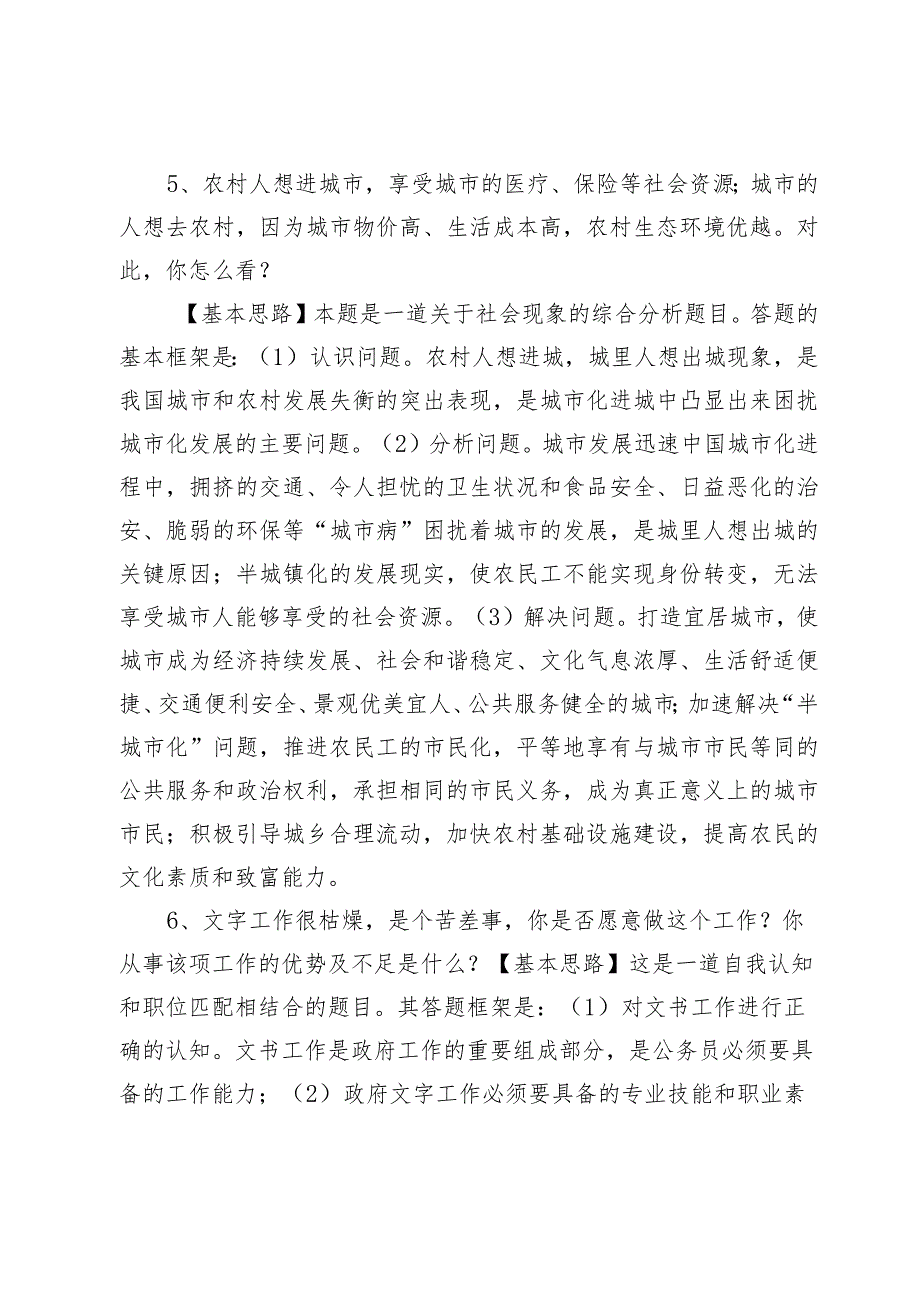 5、农村人想进城市，享受城市的医疗、保险等社会资源；城市的
人想去农村，因为城市物价高、生活成本高，农村生态环境优越。对
此，你怎么看？
【基本思路】本题是一道关于社会现象的综合分析题目。答题的
基本框架是：（1）认识问题。农村人想进城，城里人想出城现象，是
我国城市和农村发展失衡的突出表现，是城市化进城中凸显出来困扰
城市化发展的主要问题。（2）分析问题。城市发展迅速中国城市化进
程中，拥挤的交通、令人担忧的卫生状况和食品安全、日益恶化的治
安、脆弱的环保等“城市病”困扰着城市的发展，是城里人想出城的
关键原因；半城镇化的发展现实，使农民工不能实现身份转变，无法
享受城市人能够享受的社会资源。（3）解决问题。打造宜居城市，使
城市成为经济持续发展、社会和谐稳定、文化气息浓厚、生活舒适便
捷、交通便利安全、景观优美宜人、公共服务健全的城市；加速解决“半
城市化”问题，推进农民工的市民化，平等地享有与城市市民等同的
公共服务和政治权利，承担相同的市民义务，成为真正意义上的城市
市民；积极引导城乡合理流动，加快农村基础设施建设，提高农民的
文化素质和致富能力。
6、文字工作很枯燥，是个苦差事，你是否愿意做这个工作？你
从事该项工作的优势及不足是什么？【基本思路】这是一道自我认知
和职位匹配相结合的题目。其答题框架是：（1）对文书工作进行正
确的认知。文书工作是政府工作的重要组成部分，是公务员必须要具
备的工作能力；（2）政府文字工作必须要具备的专业技能和职业素